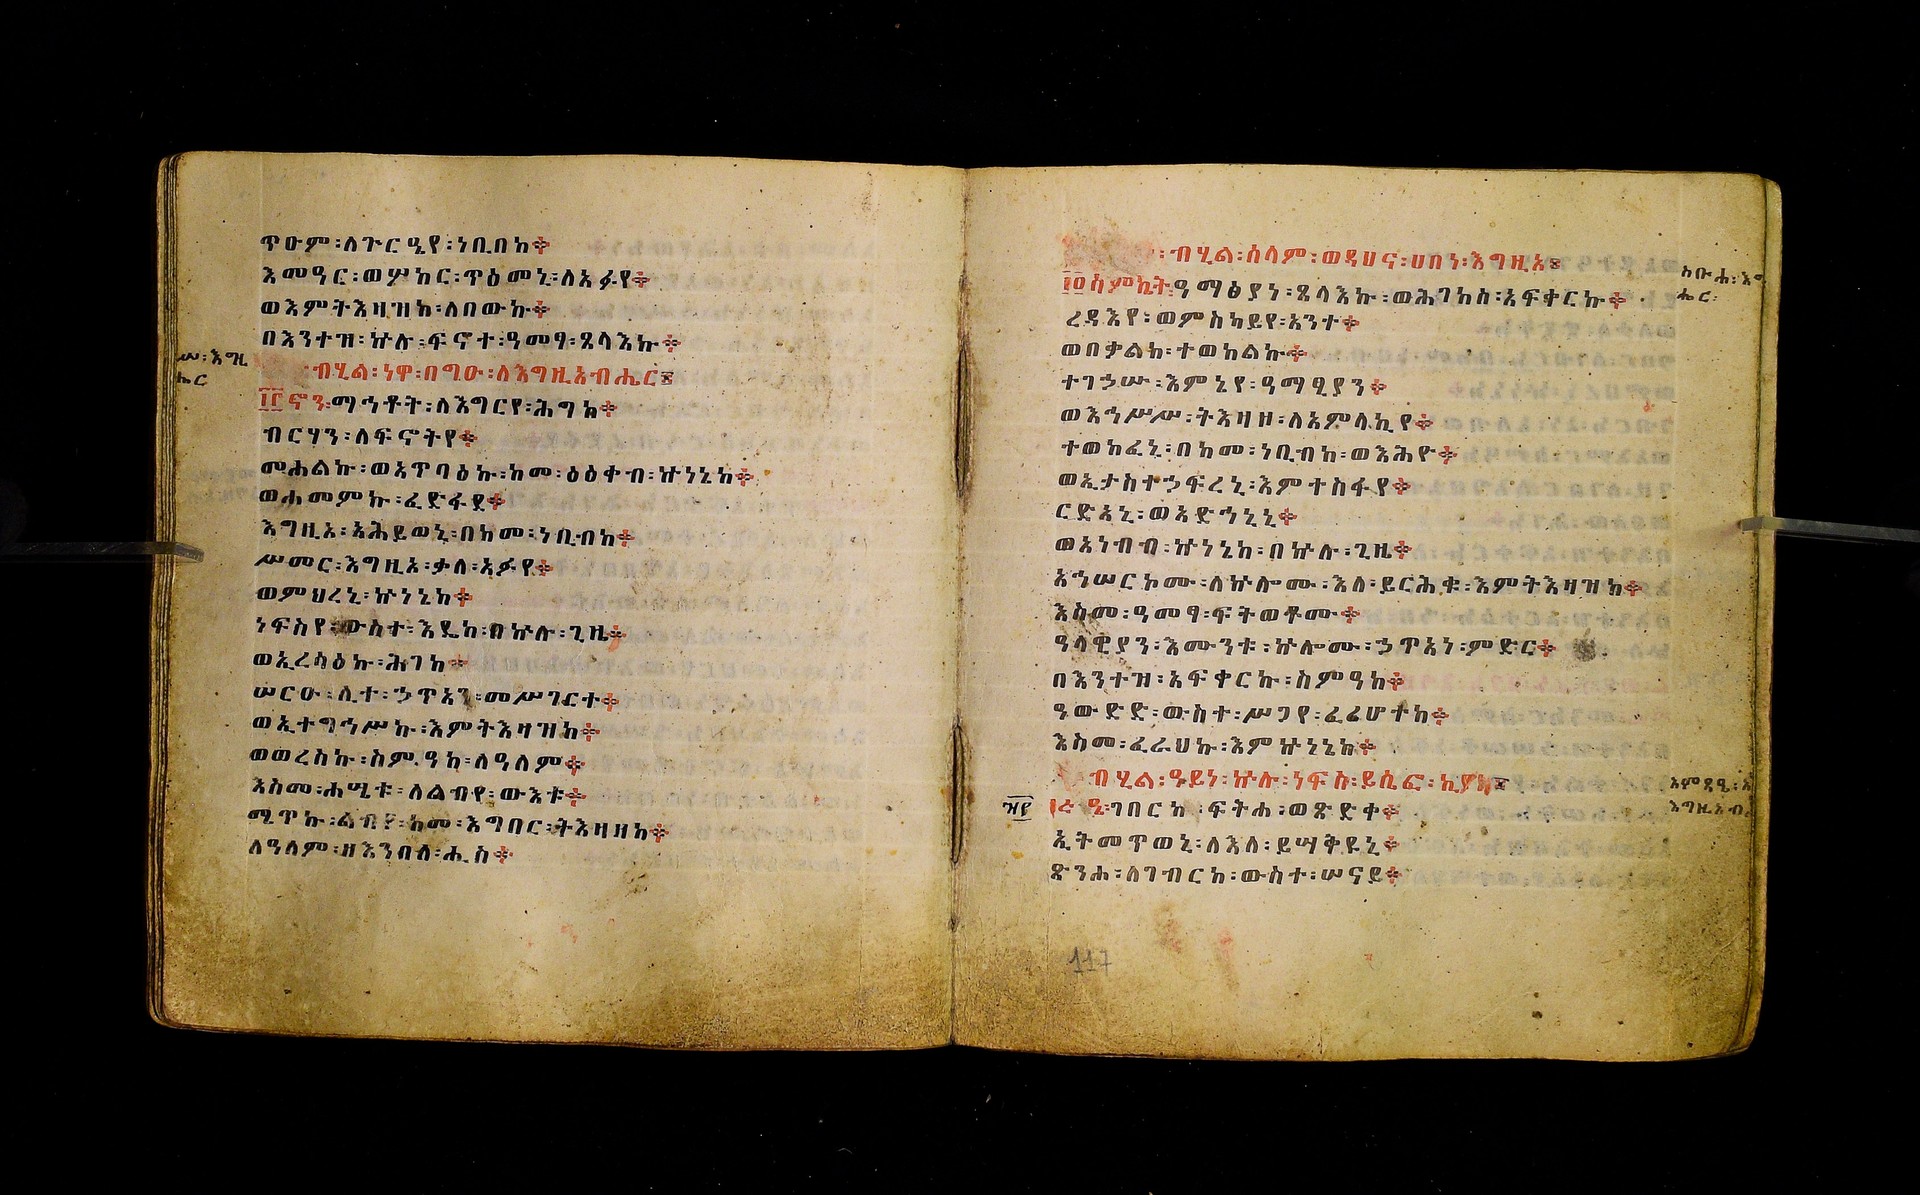 ጥዑም፡ለጕርዔየ፡ነቢበከ፨
እመዓር፡ወሦከር፡ጥዕመኒ፡ለአፉየ፨
ወእምትእዛዝከ፡ለበውኩ፨
በእንተዝ፡ኵሉ፡ፍኖተ፡ዓመፃ፡ጸላእኩ፨
ብሂል፡ነዋ፡በግዑ፡ለእግዚአብሔር፨
ኖን፡ማኅቶት፡ለእግርየ፡ሕግከ፨
ብርሃን፡ለፍኖትየ፨
መሐልኩ፡ወአጥባዕኩ፡ከመ፡ዕዕቀብ፡ኵነኔከ፨
ወሐመምኩ፡ፈድፋደ፨
እግዚአ፡አሕይወኒ፡በከመ፡ነቢብከ፨
ሥመር፡እግዚአ፡ቃለ፡አፉየ፨
ወምህረኒ፡ኵነኔከ፨
ነፍስየ፡ውስተ፡እዴከ፡በኵሉ፡ጊዜ፨
ወኢረሳዕኩ፡ሕገከ፨
ሠርዑ፡ሊተ፡ኃጥአን፡መሥገርተ፨
ወኢተግኅሥኩ፡እምትእዛዝከ፨
ወወረስኩ፡ስምዓከ፡ለዓለም፨
እስመ፡ሐሤቱ፡ለልብየ፡ውእቱ፨
ሜጥኩ፡ልብየ፡ከመ፡እግበር፡ትእዛዘከ፨
ለዓለም፡ዘእንበለ፡ሒስ፨
ሠ፡እግዚ
ሔር
፡ብሂል፡ሰላም፡ወዳህና፡ሀበነ፡እግዚአ፨
፲፭ስምኬት፡ዓማፅያነ፡ጸላእኩ፡ወሕገከስ፡አፍቀርኩ፨
ረዳእየ፡ወምስካይየ፡አንተ፨
ወበቃልከ፡ተወከልኩ፨
ተገኃሡ፡እምኔየ፡ዓማፂያን፨
ወእኅሥሥ፡ትእዛዘ፡ለአምላኪየ፨
ተወከፈኒ፡በከመ፡ነቢብከ፡ወእሕዮ፨
ወኢታስተኃፍረኒ፡እምተስፋየ፨
ርድአኒ፡ወአድኅነኒ፨
ወአነብብ፡ኵነኔከ፡በኵሉ፡ጊዜ፨
አኅሠርኮሙ፡ለኵሎሙ፡እለ፡ይርሕቁ፡እምትእዛዝከ፨
እስመ፡ዓመፃ፡ፍትወቶሙ፨
ዓላዊያን፡እሙንቱ፡ኵሎሙ፡ኃጥአነ፡ምድር፨
በእንተዝ፡አፍቀርኩ፡ስምዓከ፨
ዓውድድ፡ውስተ፡ሥጋየ፡ፈሪሆተከ፨
እስመ፡ፈራህኩ፡እምኵነኔከ፨
ብሂል፡ዓይነ፡ኵሉ፡ነፍስ፡ይሴፎ፡ኪያከ፨
ዔ፡ገበርኩ፡ፍትሐ፡ወጽድቀ፨
ኢትመጥወኒ፡ለእለ፡ይሣቅዩኒ፨
ጽንሐ፡ለገብርከ፡ውስተ፡ሠናይ፨
117